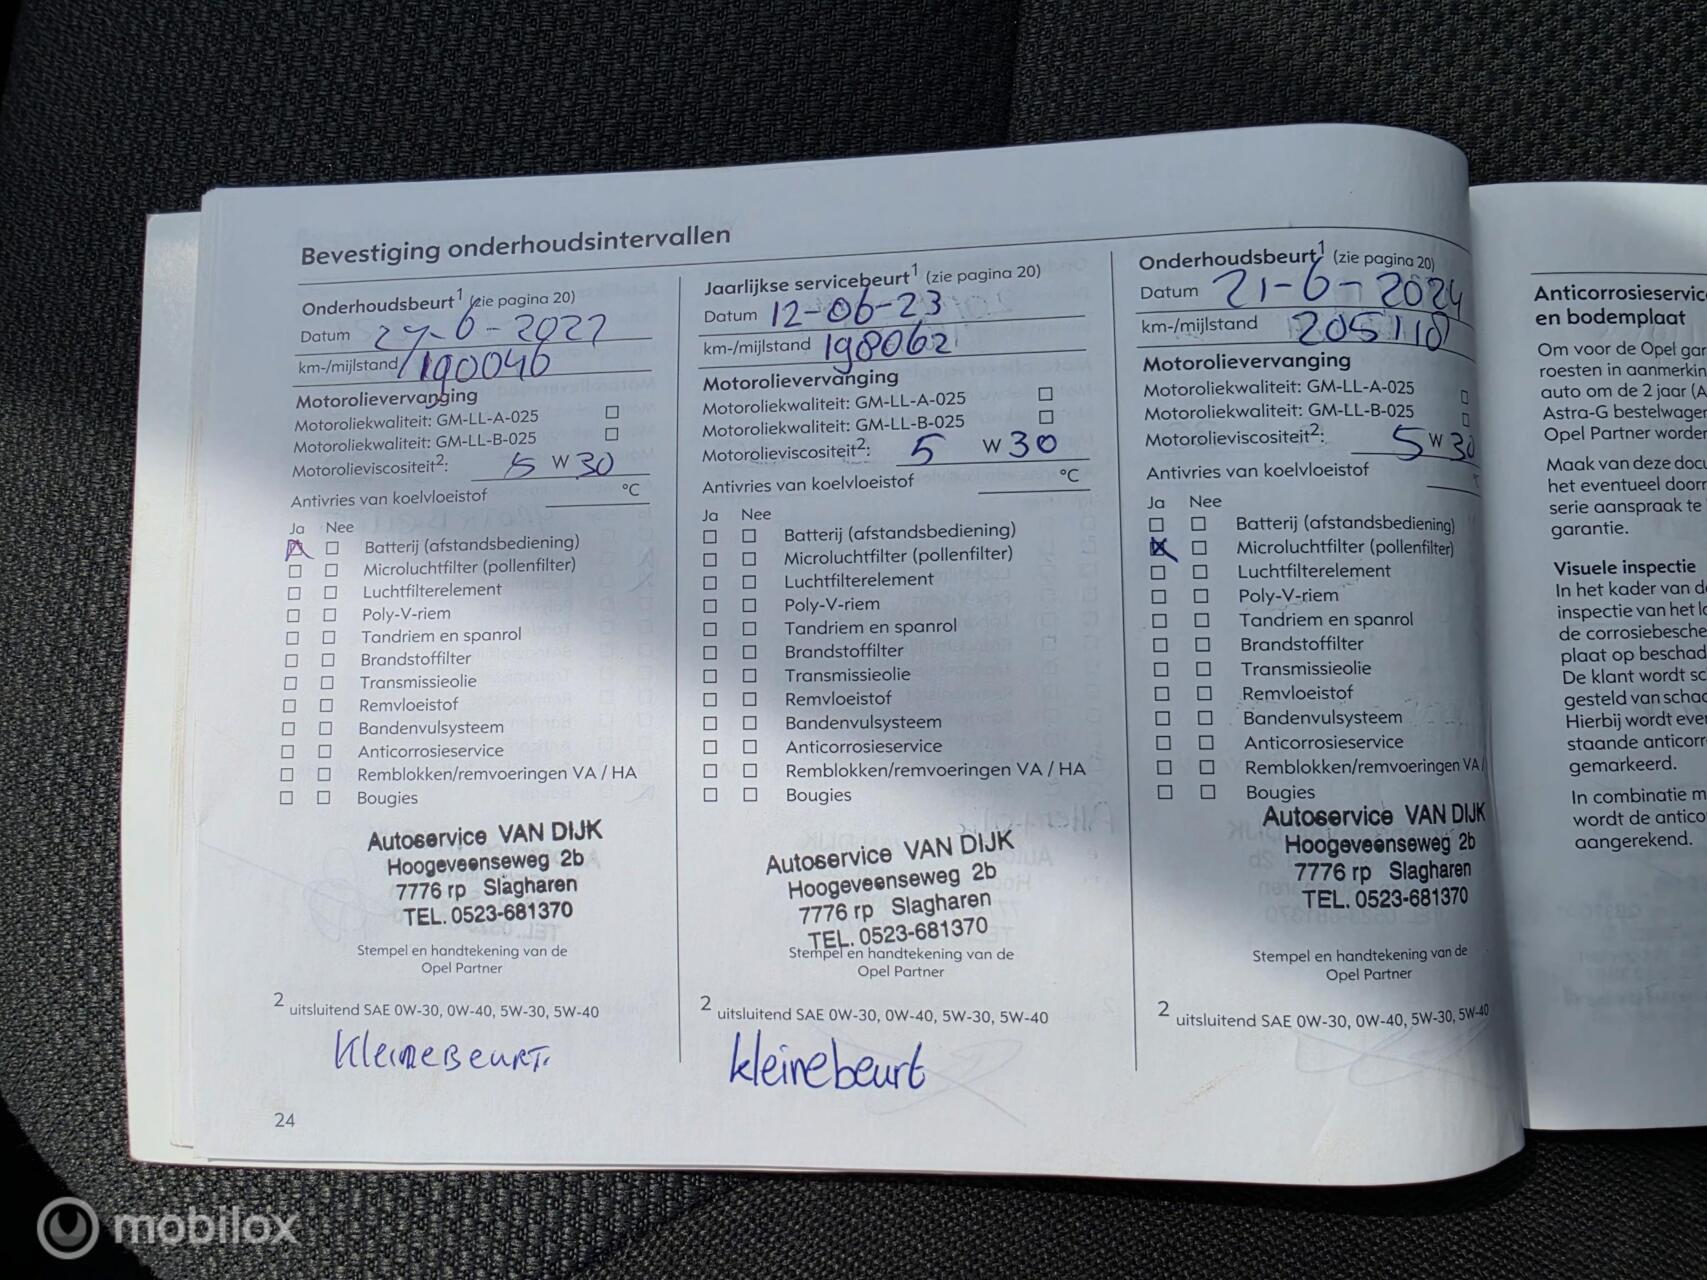 Bevestiging onderhoudsintervallen
Onderhoudsbeurt1 (zie pagina 20)
Datum 27-6-2022
km-/mijlstand 190046
Motorolievervanging
Motoroliekwaliteit: GM-LL-A-025
Motoroliekwaliteit: GM-LL-B-025
Motorolieviscositeit2: 5 W 30
Antivries van koelvloeistof °C
Ja Nee
Batterij (afstandsbediening)
Microluchtfilter (pollenfilter)
Luchtfilterelement
Poly-V-riem
Tandriem en spanrol
Brandstoffilter
Transmissieolie
Remvloeistof
Bandenvulsysteem
Anticorrosieservice
Remblokken/remvoeringen VA / HA
Bougies
Autoservice VAN DIJK
Hoogeveenseweg 2b
7776 rp Slagharen
TEL. 0523-681370
Stempel en handtekening van de
Opel Partner
2 uitsluitend SAE 0W-30, 0W-40, 5W-30, 5W-40
KleineBeurt.
24
Jaarlijkse servicebeurt1 (zie pagina 20)
Datum 12-06-23
km-/mijlstand 198062
Motorolievervanging
Motoroliekwaliteit: GM-LL-A-025
Motoroliekwaliteit: GM-LL-B-025
Motorolieviscositeit2: 5 W 30
Antivries van koelvloeistof °C
Ja Nee
Batterij (afstandsbediening)
Microluchtfilter (pollenfilter)
Luchtfilterelement
Poly-V-riem
Tandriem en spanrol
Brandstoffilter
Transmissieolie
Remvloeistof
Bandenvulsysteem
Anticorrosieservice
Remblokken/remvoeringen VA / HA
Bougies
Autoservice VAN DIJK
Hoogeveenseweg 2b
7776 rp Slagharen
TEL. 0523-681370
Stempel en handtekening van de
Opel Partner
2 uitsluitend SAE 0W-30, 0W-40, 5W-30, 5W-40
kleinebeurt
Onderhoudsbeurt1 (zie pagina 20)
Datum 21-6-2024
km-/mijlstand 205110
Motorolievervanging
Motoroliekwaliteit: GM-LL-A-025
Motoroliekwaliteit: GM-LL-B-025
Motorolieviscositeit2: 5 W 30
Antivries van koelvloeistof
Ja Nee
Batterij (afstandsbediening)
Microluchtfilter (pollenfilter)
Luchtfilterelement
Poly-V-riem
Tandriem en spanrol
Brandstoffilter
Transmissieolie
Remvloeistof
Bandenvulsysteem
Anticorrosieservice
Remblokken/remvoeringen VA /
Bougies
Autoservice VAN DIJK
Hoogeveenseweg 2b
7776 rp Slagharen
TEL. 0523-681370
Stempel en handtekening van de
Opel Partner
2 uitsluitend SAE 0W-30, 0W-40, 5W-30, 5W-40
Anticorrosieservic
en bodemplaat
Om voor de Opel gar
roesten in aanmerkin
auto om de 2 jaar (A
Astra-G bestelwager
Opel Partner worder
Maak van deze docu
het eventueel doorr
serie aanspraak te
garantie.
Visuele inspectie
In het kader van de
inspectie van het la
de corrosiebesche
plaat op beschad
De klant wordt sc
gesteld van schad
Hierbij wordt ever
staande anticorr
gemarkeerd.
In combinatie m
wordt de antico
aangerekend.
mobilox